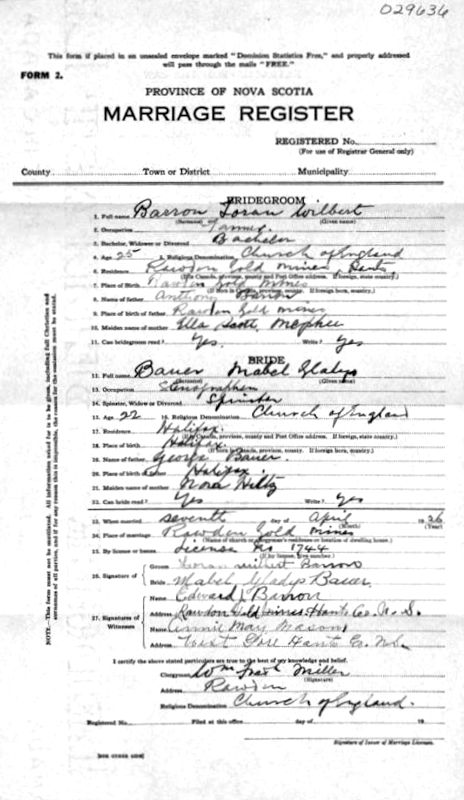 029636
This form if placed in an unsealed envelope marked "Dominion Statistics Free," and properly addressed
will pass through the mails "FREE."
FORM 2.
PROVINCE OF NOVA SCOTIA
MARRIAGE REGISTER
REGISTERED No.
(For use of Registrar General only)
County Town or District Municipality
BRIDEGROOM
1. Full name Barron Loran Wilbert
(Surname) (Given name)
2. Occupation Farmer
3. Bachelor, Widower or Divorced Bachelor
4. Age 25 5. Religious Denomination Church of England
6. Residence Rawdon Gold Mines Hants
(If in Canada, province, county and Post Office address. If foreign, state country.)
7. Place of Birth Rawdon Gold Mines
(If born in Canada, province, county. If foreign born, country.)
8. Name of father Anthony Barron
9. Place of birth of father Rawdon Gold Mines
10. Maiden name of mother Ella Scott McPhee
11. Can bridegroom read? Yes. Write? Yes
BRIDE
12. Full name Bauer Mabel Gladys
(Surname) (Given name)
13. Occupation Stenographer
14. Spinster, Widow or Divorced Spinster
15. Age 22 16. Religious Denomination Church of England
17. Residence Halifax.
(If in Canada, province, county and Post Office address. If foreign, state country.)
18. Place of birth Halifax.
(If born in Canada, province, county. If foreign born, country.)
19. Name of father George Bauer.
20. Place of birth of father Halifax.
21. Maiden name of mother Nora Hiltz
22. Can bride read? Yes Write? Yes
23. When married seventh day of April 1936
(Month) (Year)
24. Place of marriage Rawdon Gold Mines
(Name of church or clergyman's residence or location of dwelling house)
25. By license or banns License No 1744
(If by license, give number.)
26. Signature of Groom Loran Wilbert Barron
Bride Mabel Gladys Bauer.
27. Signatures of Witnesses Name Edward Barron
Address Rawdon Gold Mines Hants Co. N.S.
Name Annie May Mason
Address West Gore Hants Co. N.S.
I certify the above stated particulars are true to the best of my knowledge and belief.
Clergyman Wm Miller
(Signature)
Address Rawdon
Religious Denomination Church of England.
Registered No. Filed at this office day of 19
Signature of Issuer of Marriage Licenses.
[SEE OTHER SIDE]
NOTE.—This form must not be mutilated. All information asked for is to be given, including full Christian and
surnames of all parties, and if for any reason this is impossible, the reason for the omission must be stated.